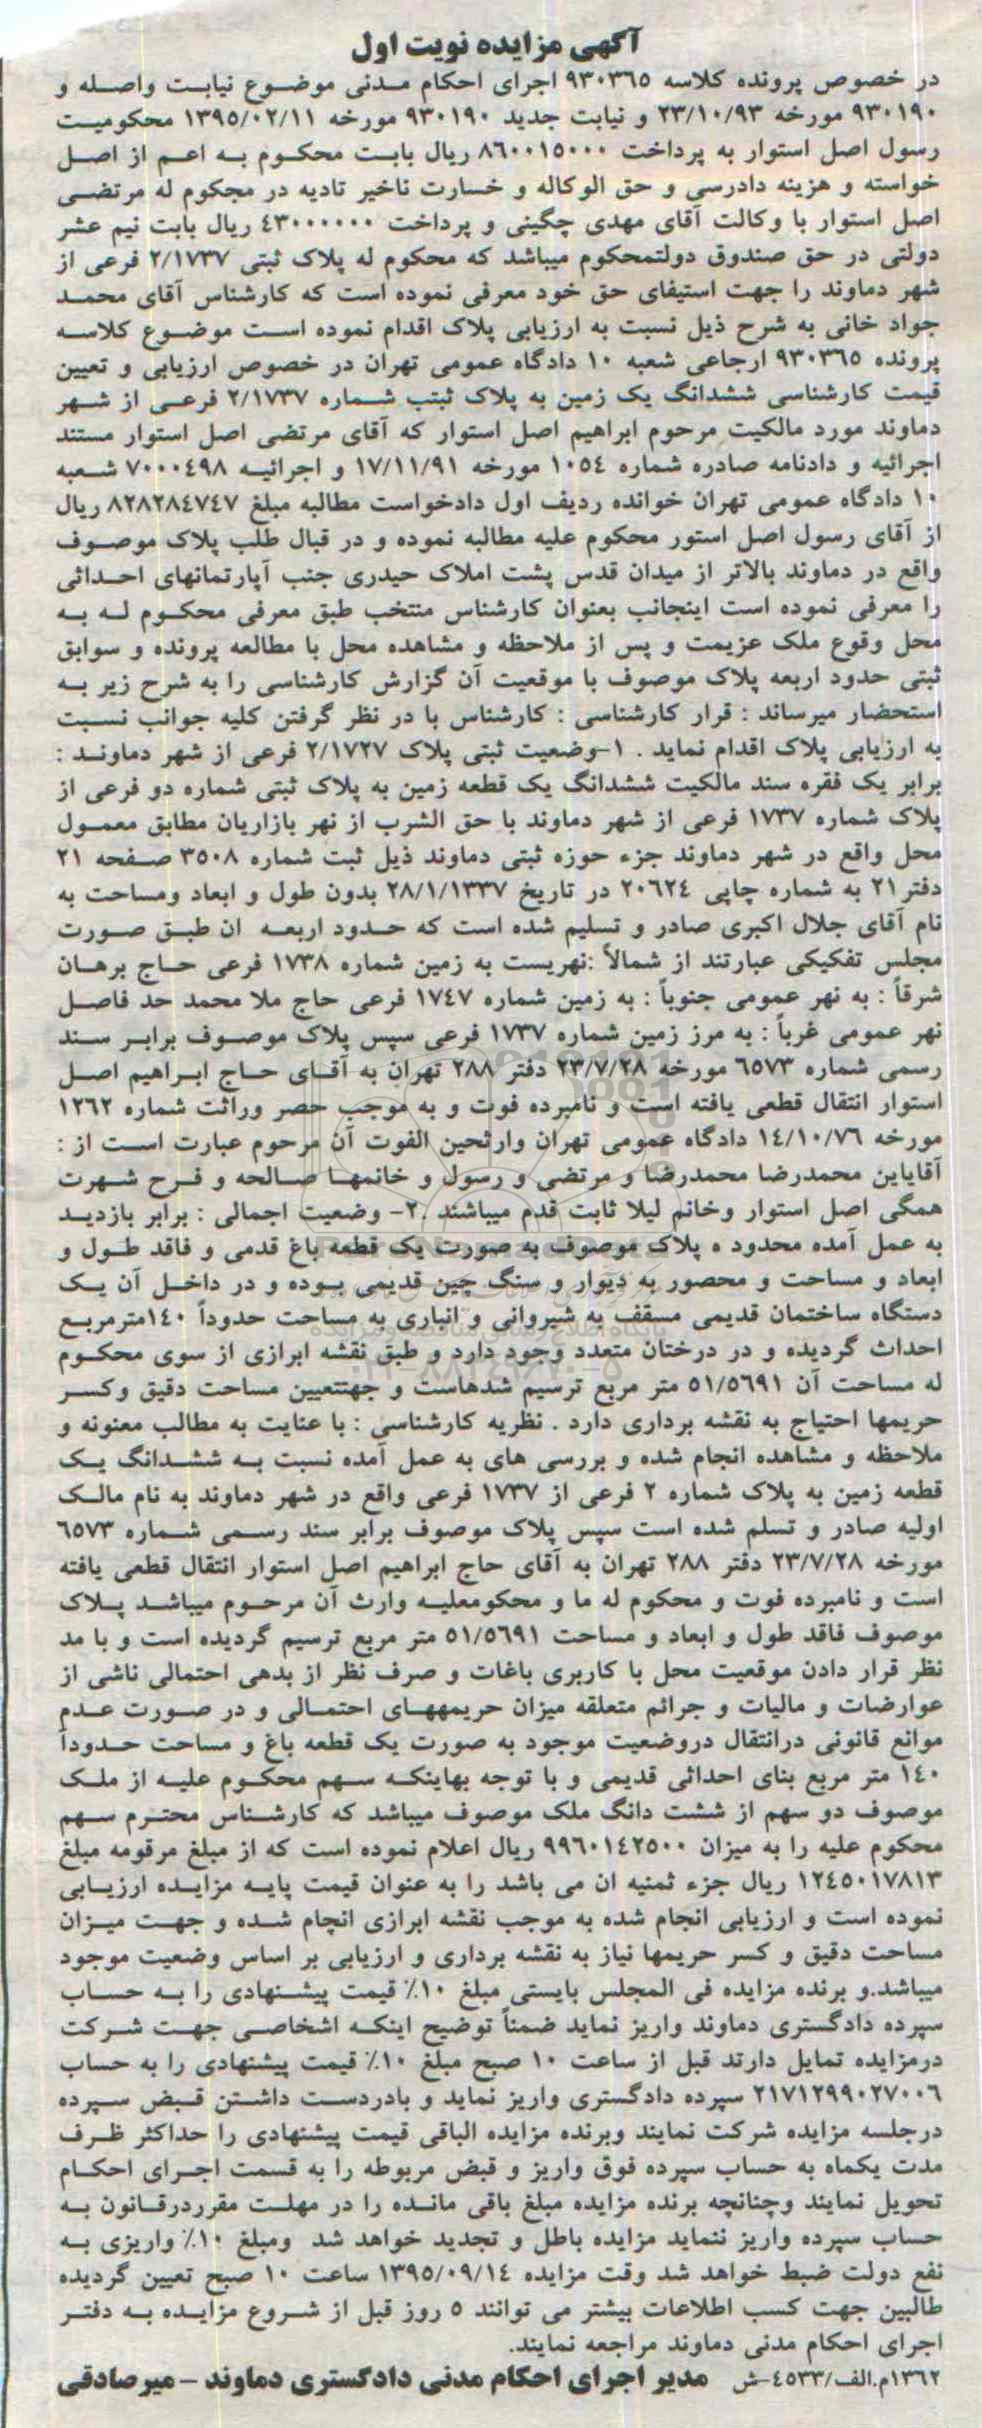 آگهی مزایده نوبت اول
در خصوص پرونده کلاسه ۹۳۰۳۶۵ اجرای احکام مدنی موضوع نیابت واصله و
۹۳۰۱۹۰ مورخه ۲۳/۱۰/۹۳ و نیابت جدید ۹۳۰۱۹۰ مورخه ۱۳۹۵/۰۲/۱۱ محکومیت
رسول اصل استوار به پرداخت ۸۶۰۰۱۵۰۰۰ ریال بابت محکوم به اعم از اصل
خواسته و هزینه دادرسی و حق الوکاله و خسارت تاخیر تادیه در مجکوم له مرتضی
اصل استوار با وکالت آقای مهدی چگینی و پرداخت ۴۳۰۰۰۰۰۰ ریال بابت نیم عشر
دولتی در حق صندوق دولتمحکوم میباشد که محکوم له پلاک ثبتی ۲/۱۷۳۷ فرعی از
شهر دماوند را جهت استیفای حق خود معرفی نموده است که کارشناس آقای محمد
جواد خانی به شرح ذیل نسبت به ارزیابی پلاک اقدام نموده است موضوع کلاسه
پرونده ۹۳۰۳۶۵ ارجاعی شعبه ۱۰ دادگاه عمومی تهران در خصوص ارزیابی و تعیین
قیمت کارشناسی ششدانگ یک زمین به پلاک ثبتب شماره ۲/۱۷۳۷ فرعی از شهر
دماوند مورد مالکیت مرحوم ابراهیم اصل استوار که آقای مرتضی اصل استوار مستند
اجرائیه و دادنامه صادره شماره ۱۰۵۴ مورخه ۱۷/۱۱/۹۱ و اجرائیه ۷۰۰۰۴۹۸ شعبه
۱۰ دادگاه عمومی تهران خوانده ردیف اول دادخواست مطالبه مبلغ ۸۲۸۲۸۴۷۴۷ ریال
از آقای رسول اصل استور محکوم علیه مطالبه نموده و در قبال طلب پلاک موصوف
واقع در دماوند بالاتر از میدان قدس پشت املاک حیدری جنب آپارتمانهای احداثی
را معرفی نموده است اینجانب بعنوان کارشناس منتخب طبق معرفی محکوم له به
محل وقوع ملک عزیمت و پس از ملاحظه و مشاهده محل با مطالعه پرونده و سوابق
ثبتی حدود اربعه پلاک موصوف با موقعیت آن گزارش کارشناسی را به شرح زیر به
استحضار میرساند : قرار کارشناسی : کارشناس با در نظر گرفتن کلیه جوانب نسبت
به ارزیابی پلاک اقدام نماید . ۱-وضعیت ثبتی پلاک ۲/۱۷۲۷ فرعی از شهر دماوند :
برابر یک فقره سند مالکیت ششدانگ یک قطعه زمین به پلاک ثبتی شماره دو فرعی از
پلاک شماره ۱۷۳۷ فرعی از شهر دماوند با حق الشرب از نهر بازاریان مطابق معمول
محل واقع در شهر دماوند جزء حوزه ثبتی دماوند ذیل ثبت شماره ۳۵۰۸ صفحه ۲۱
دفتر۲۱ به شماره چاپی ۲۰۶۲۴ در تاریخ ۲۸/۱/۱۳۳۷ بدون طول و ابعاد ومساحت به
نام آقای جلال اکبری صادر و تسلیم شده است که حدود اربعه ان طبق صورت
مجلس تفکیکی عبارتند از شمالاً :نهریست به زمین شماره ۱۷۳۸ فرعی حاج برهان
شرقاً : به نهر عمومی جنوباً : به زمین شماره ۱۷۴۷ فرعی حاج ملا محمد حد فاصل
نهر عمومی غرباً : به مرز زمین شماره ۱۷۳۷ فرعی سپس پلاک موصوف برابر سند
رسمی شماره ۶۵۷۳ مورخه ۲۳/۷/۲۸ دفتر ۲۸۸ تهران به آقای حاج ابراهیم اصل
استوار انتقال قطعی یافته است و نامبرده فوت و به موجب حصر وراثت شماره ۱۲۶۲
مورخه ۱۴/۱۰/۷۶ دادگاه عمومی تهران وارثحین الفوت آن مرحوم عبارت است از :
آقایاین محمدرضا محمدرضا و مرتضی و رسول و خانمها صالحه و فرح شهرت
همگی اصل استوار وخانم لیلا ثابت قدم میباشند .۲- وضعیت اجمالی : برابر بازدید
به عمل آمده محدود ه پلاک موصوف به صورت یک قطعه باغ قدمی و فاقد طول و
ابعاد و مساحت و محصور به دیوار و سنگ چین قدیمی بوده و در داخل آن یک
دستگاه ساختمان قدیمی مسقف به شیروانی و انباری به مساحت حدوداً ۱۴۰مترمربع
احداث گردیده و در درختان متعدد وجود دارد و طبق نقشه ابرازی از سوی محکوم
له مساحت آن ۵۱/۵۶۹۱ متر مربع ترسیم شدهاست و جهتتعیین مساحت دقیق وکسر
حریمها احتیاج به نقشه برداری دارد . نظریه کارشناسی : با عنایت به مطالب معنونه و
ملاحظه و مشاهده انجام شده و بررسی های به عمل آمده نسبت به ششدانگ یک
قطعه زمین به پلاک شماره ۲ فرعی از ۱۷۳۷ فرعی واقع در شهر دماوند به نام مالک
اولیه صادر و تسلم شده است سپس پلاک موصوف برابر سند رسمی شماره ۶۵۷۳
مورخه ۲۳/۷/۲۸ دفتر ۲۸۸ تهران به آقای حاج ابراهیم اصل استوار انتقال قطعی یافته
است و نامبرده فوت و محکوم له ما و محکومعلیه وارث آن مرحوم میباشد پلاک
موصوف فاقد طول و ابعاد و مساحت ۵۱/۵۶۹۱ متر مربع ترسیم گردیده است و با مد
نظر قرار دادن موقعیت محل با کاربری باغات و صرف نظر از بدهی احتمالی ناشی از
عوارضات و مالیات و جرائم متعلقه میزان حریمههای احتمالی و در صورت عدم
موانع قانونی درانتقال دروضعیت موجود به صورت یک قطعه باغ و مساحت حدوداً
۱۴۰ متر مربع بنای احداثی قدیمی و با توجه بهاینکه سهم محکوم علیه از ملک
موصوف دو سهم از ششت دانگ ملک موصوف میباشد که کارشناس محترم سهم
محکوم علیه را به میزان ۹۹۶۰۱۴۲۵۰۰ ریال اعلام نموده است که از مبلغ مرقومه مبلغ
۱۲۴۵۰۱۷۸۱۳ ریال جزء ثمنیه ان می باشد را به عنوان قیمت پایه مزایده ارزیابی
نموده است و ارزیابی انجام شده به موجب نقشه ابرازی انچام شده و جهت میزان
مساحت دقیق و کسر حریمها نیاز به نقشه برداری و ارزیابی بر اساس وضعیت موجود
میباشد.و برنده مزایده فی المجلس بایستی مبلغ ۱۰٪ قیمت پیشنهادی را به حساب
سپرده دادگستری دماوند واریز نماید ضمناً توضیح اینکه اشخاصی جهت شرکت
درمزایده تمایل دارتد قبل از ساعت ۱۰ صبح مبلغ ۱۰٪ قیمت پیشنهادی را به حساب
۲۱۷۱۲۹۹۰۲۷۰۰۶ سپرده دادگستری واریز نماید و بادردست داشتن قبض سپرده
درجلسه مزایده شرکت نمایند وبرنده مزایده الباقی قیمت پیشنهادی را حداکثر ظرف
مدت یکماه به حساب سپرده فوق واریز و قبض مربوطه را به قسمت اجرای احکام
تحویل نمایند وچنانچه برنده مزایده مبلغ باقی مانده را در مهلت مقرردرقانون به
حساب سپرده واریز ننماید مزایده باطل و تجدید خواهد شد ومبلغ ۱۰٪ واریزی به
نفع دولت ضبط خواهد شد وقت مزایده ۱۳۹۵/۰۹/۱۴ ساعت ۱۰ صبح تعیین گردیده
طالبین جهت کسب اطلاعات بیشتر می توانند ۵ روز قبل از شروع مزایده به دفتر
اجرای احکام مدنی دماوند مراجعه نمایند.
۱۳۶۲م.الف/۴۵۳۳-ش مدیر اجرای احکام مدنی دادگستری دماوند - میرصادقی